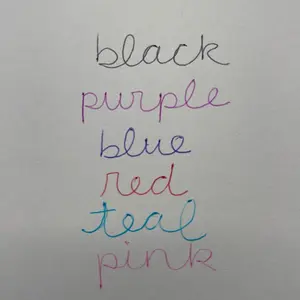 black
purple
blue
red
teal
pink